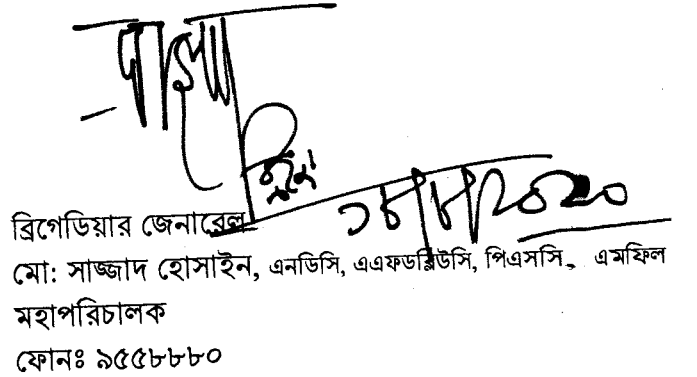 ব্রিগেডিয়ার জেনারেল
মো: সাজ্জাদ হোসাইন, এনডিসি, এএফডব্লিউসি, পিএসসি, এমফিল
মহাপরিচালক
ফোনঃ ৯৫৫৮৮৮০